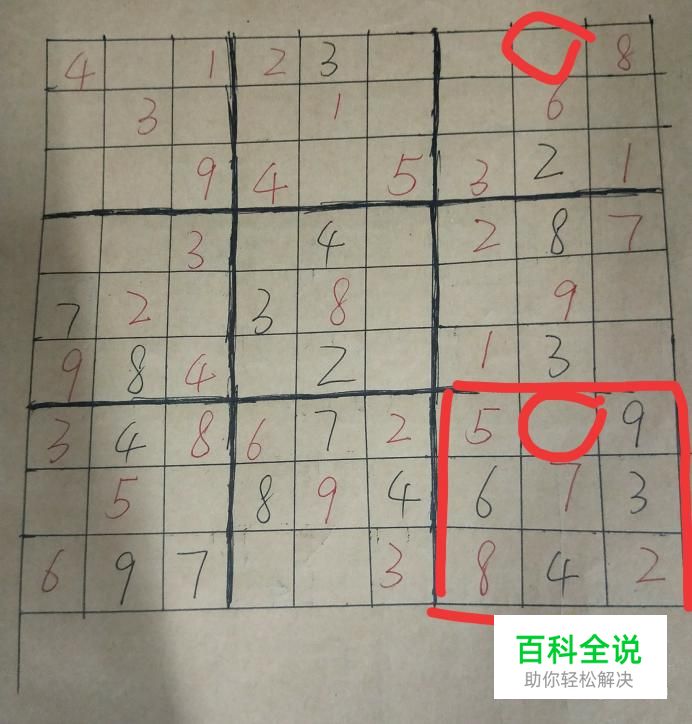 4 1 2 3 8
3 1 6
9 4 5 3 2 1
3 4 2 8 7
7 2 3 8 9
9 8 4 2 1 3
3 4 8 6 7 2 5 9
5 8 9 4 6 7 3
6 9 7 3 8 4 2
百科全说
助你轻松解决